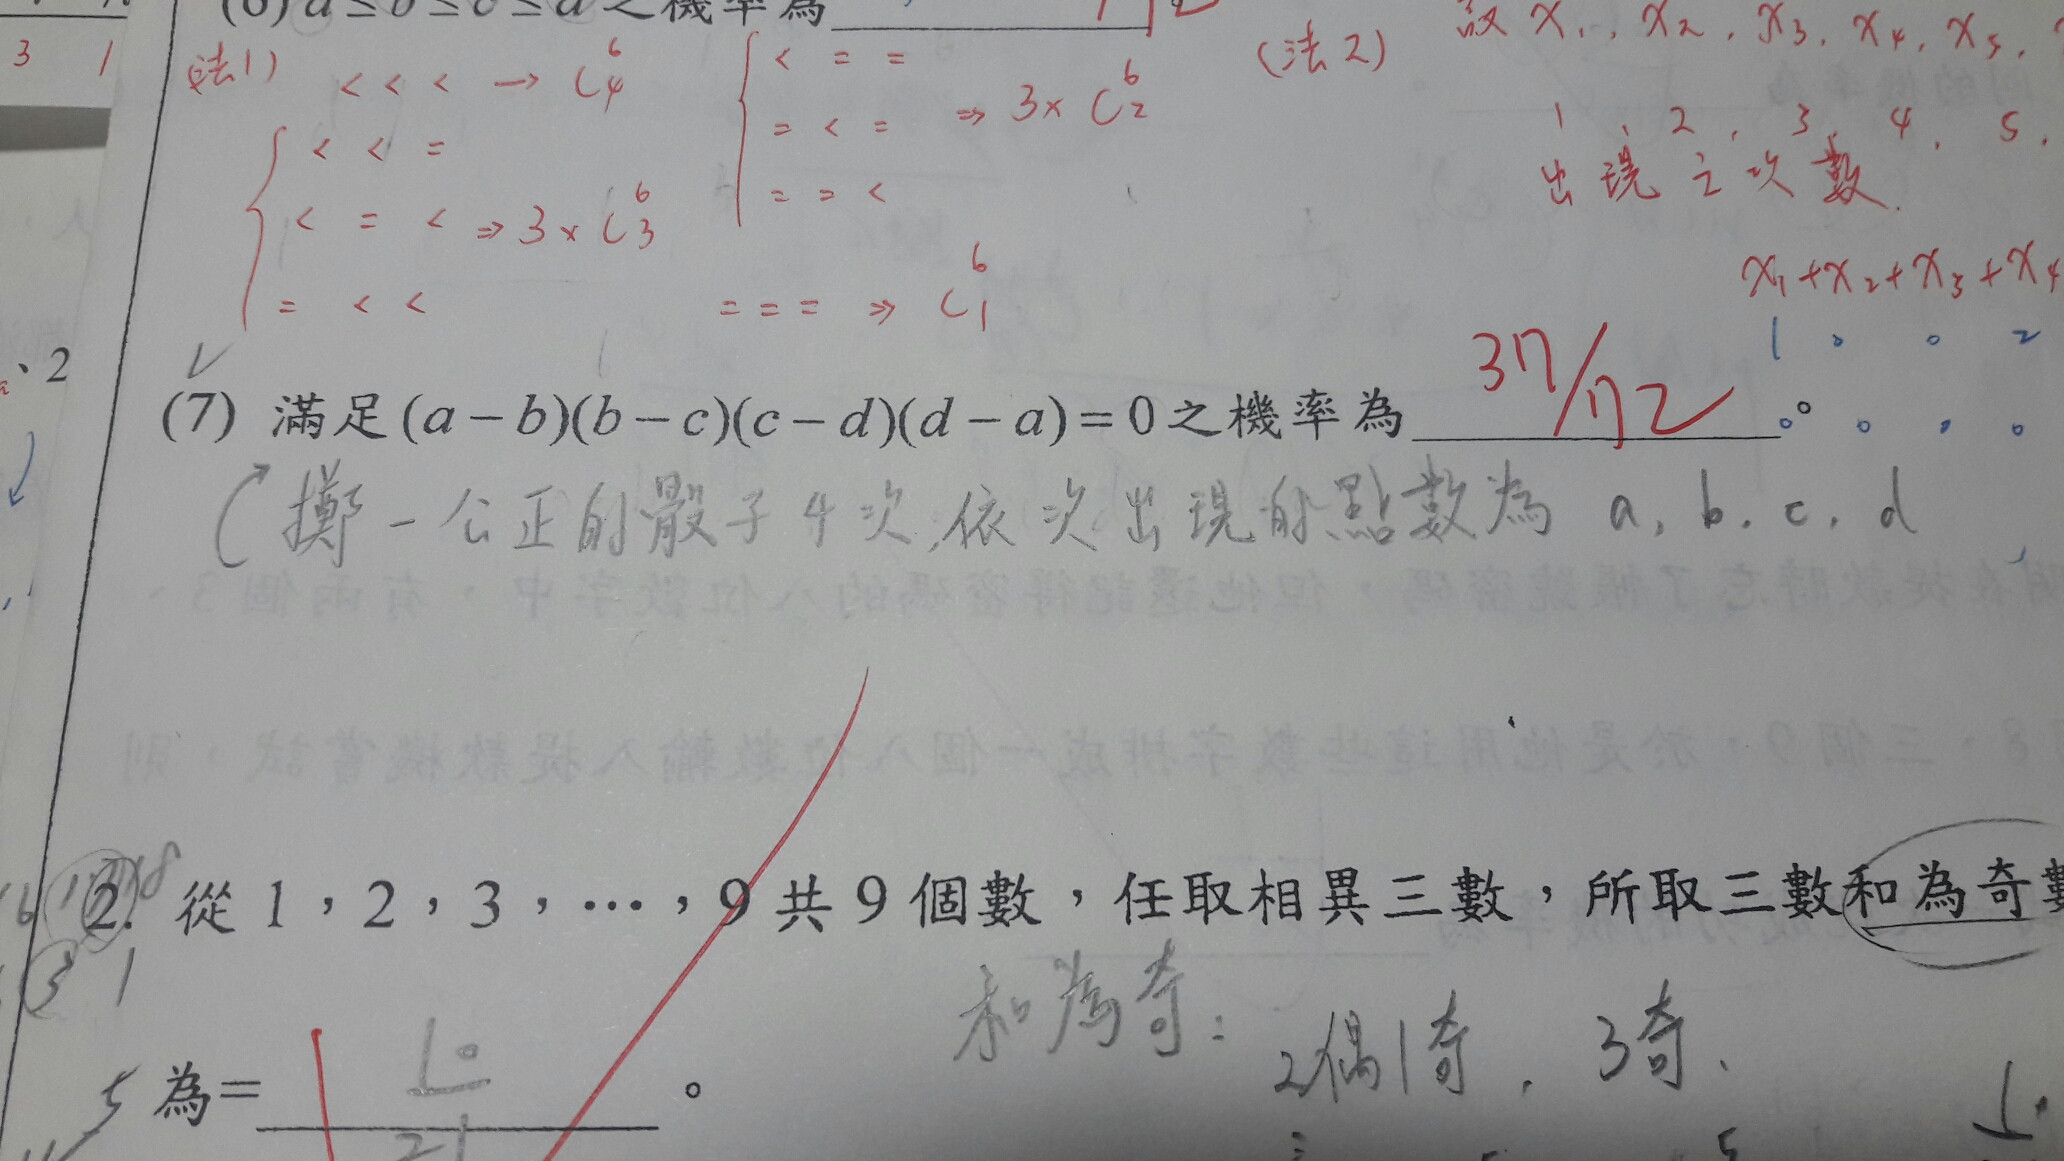 (6) a ≤ b ≤ c ≤ d 之機率為
3 1
(法1) < < < → C⁶₄
< < =
< = < ⇒ 3 × C⁶₃
= < <
< = =
= < = ⇒ 3 × C⁶₂
= = <
= = = ⇒ C⁶₁
(法2) 設 x₁, x₂, x₃, x₄, x₅,
1, 2, 3, 4, 5,
出現之次數
x₁+x₂+x₃+x₄
、2
(7) 滿足(a－b)(b－c)(c－d)(d－a)=0之機率為 37/72 。
擲一公正的骰子4次,依次出現的點數為 a, b, c, d
2. 從 1，2，3，…，9 共 9 個數，任取相異三數，所取三數和為奇數
3 1
和為奇:
2偶1奇, 3奇、
5 為= 10/21 。